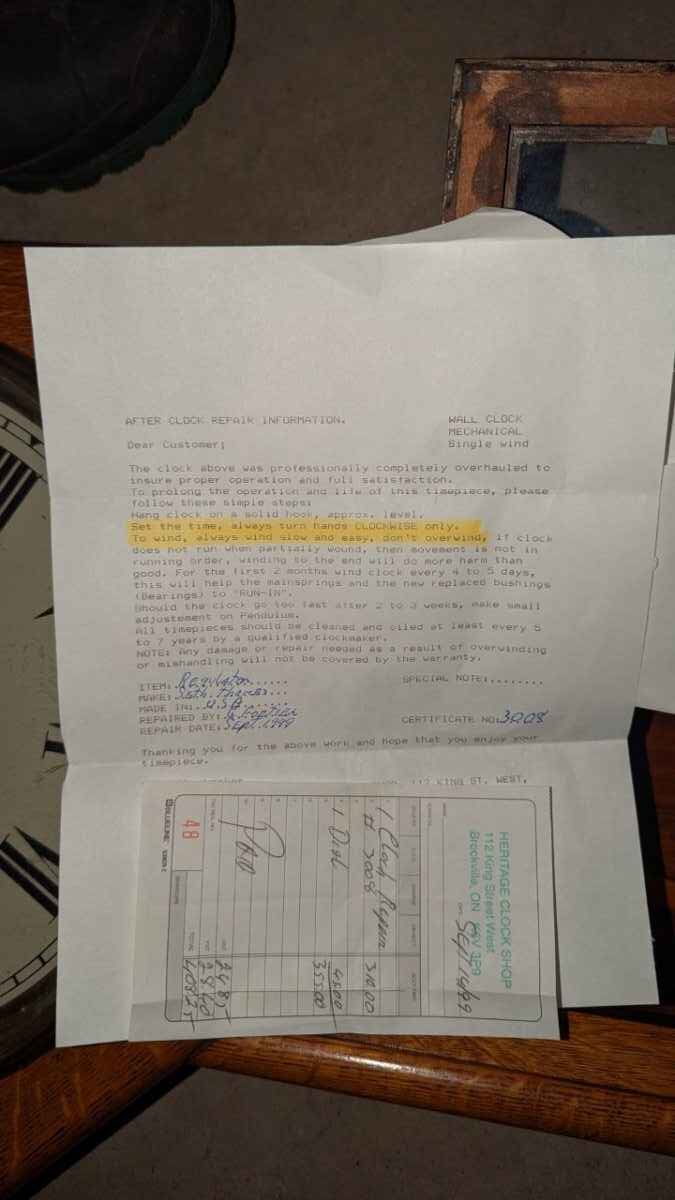 AFTER CLOCK REPAIR INFORMATION.
WALL CLOCK
MECHANICAL
Single wind
Dear Customer;
The clock above was professionally completely overhauled to
insure proper operation and full satisfaction.
To prolong the operation and life of this timepiece, please
follow these simple steps:
Hang clock on a solid hook, approx. level.
Set the time, always turn hands CLOCKWISE only.
To wind, always wind slow and easy, don't overwind, if clock
does not run when partially wound, then movement is not in
running order, winding to the end will do more harm than
good. For the first 2 months wind clock every 4 to 5 days,
this will help the mainsprings and the new replaced bushings
(Bearings) to "RUN-IN".
Should the clock go too fast after 2 to 3 weeks, make small
adjustement on Pendulum.
All timepieces should be cleaned and oiled at least every 5
to 7 years by a qualified clockmaker.
NOTE: Any damage or repair needed as a result of overwinding
or mishandling will not be covered by the warranty.
ITEM: Regulator......
SPECIAL NOTE:........
MAKE: Seth. Thomas...
MADE IN: U.S.A...
REPAIRED BY:
REPAIR DATE: Sept. 1999
CERTIFICATE NO: 3008
Thanking you for the above work and hope that you enjoy your
timepiece.
112 KING ST. WEST,
HERITAGE CLOCK SHOP
112 King Street West
Brockville, ON K6V 3P9
DATE Sept 14/99
1 Clock Repair 310.00
# 3008
1 Dial 45.00
355.00
Paid
24.85
28.40
TOTAL 408.25
48
BLUELINE